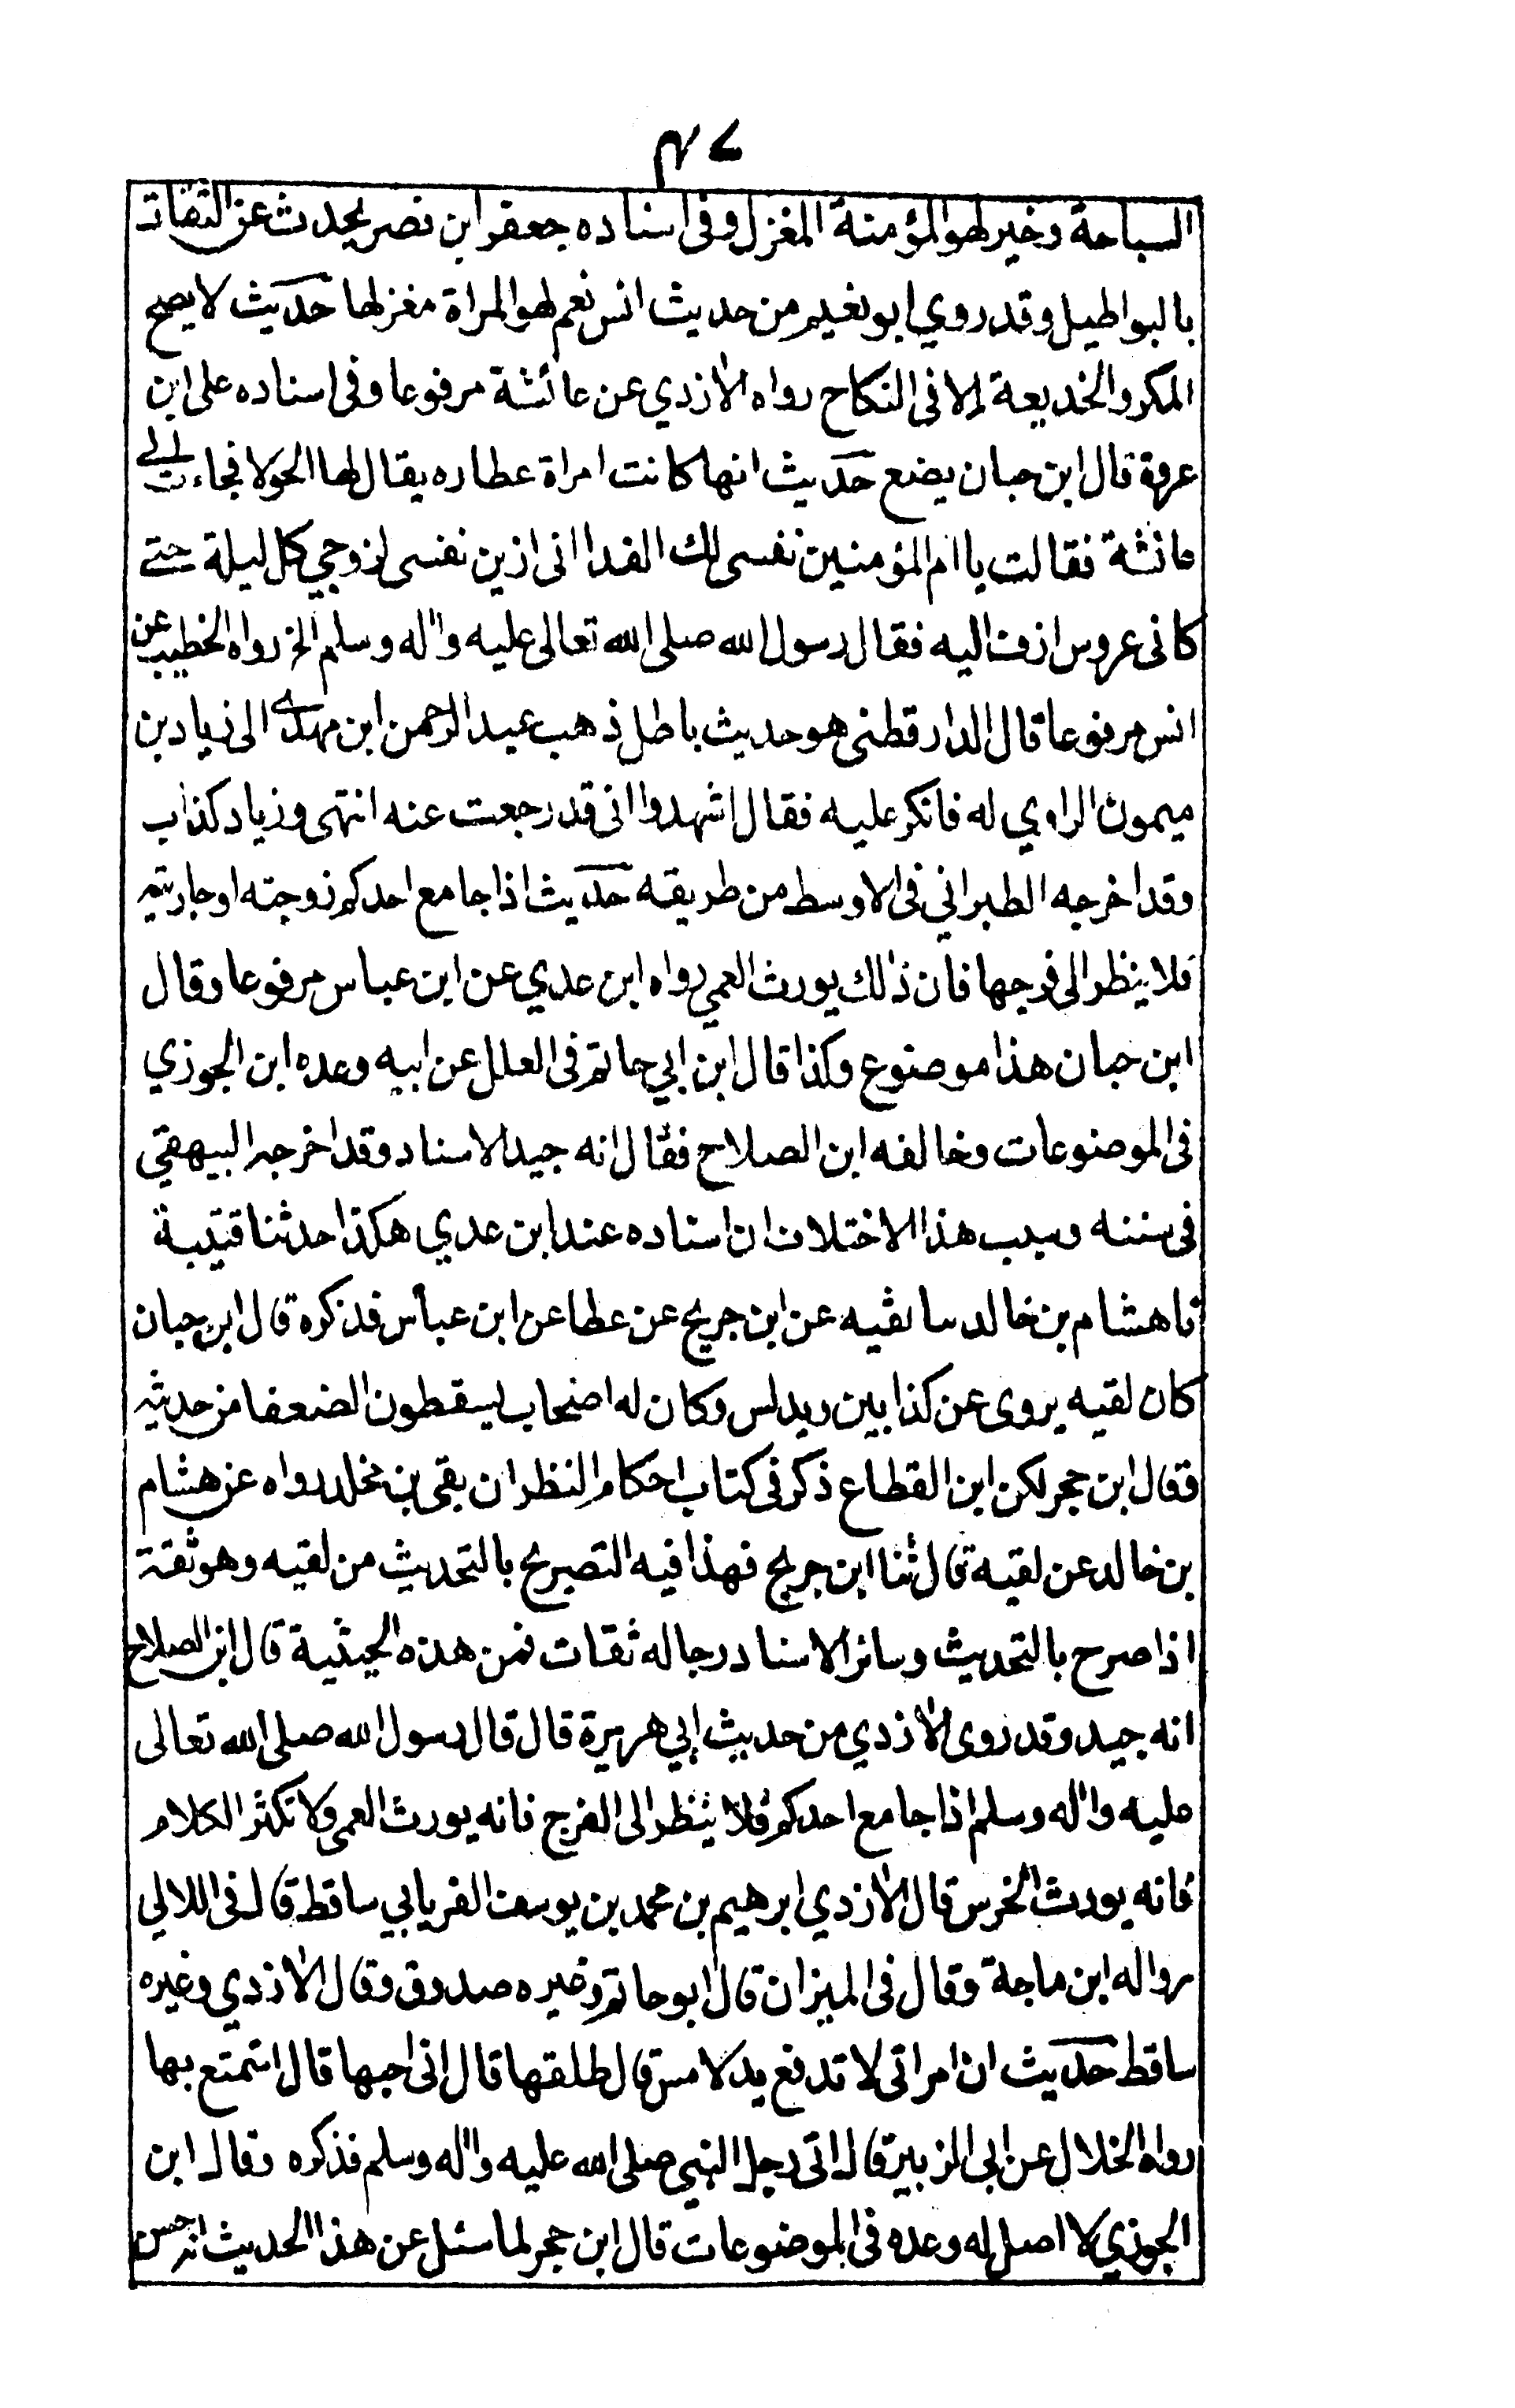 ٤٧
السباحة وخير لهو المؤمنة المغزل وفى اسناده جعفر ابن نصر يحدث عن الثقات
بالبواطيل وقد روي ابو نعيم من حديث انس نعم لهو المراة مغزلها حديث لا يصح
المكر والخديعة الا فى النكاح رواه الازدي عن عائشة مرفوعا وفى اسناده على ابن
عروة قال ابن حبان يضع حديث انها كانت امراة عطاره يقال لها الحولا فجاءت الى
عائشة فقالت يا ام المؤمنين نفسى لك الفدا انى ازين نفسى لزوجي كل ليلة حتے
كانى عروس ازف اليه فقال رسول الله صلى الله تعالى عليه واله وسلم الخ رواه الخطيب عن
انس مرفوعا قال الدارقطنى هو حديث باطل ذهب عبد الرحمن ابن مهدى الى زياد بن
ميمون الراوي له فانكر عليه فقال اشهدوا انى قد رجعت عنه انتهى وزياد كذاب
وقد اخرجه الطبراني فى الاوسط من طريقه حديث اذا جامع احدكم زوجته او جاريته
فلا ينظر الى فرجها فان ذالك يورث العمي رواه ابن عدي عن ابن عباس مرفوعا وقال
ابن حبان هذا موضوع وكذا قال ابن ابي حاتم فى العلل عن ابيه وعده ابن الجوزي
فى الموضوعات وخالفه ابن الصلاح فقال انه جيد الاسناد وقد اخرجه البيهقي
فى سننه وسبب هذا الاختلاف ان اسناده عند ابن عدي هكذا حدثنا قتيبة
نا هشام بن خالد سا لقيه عن ابن جريج عن عطا عن ابن عباس فذكره قال ابن حبان
كان لقيه يروى عن كذابين ويدلس وكان له اصحاب يسقطون الضعفا من حديثه
فقال ابن حجر لكن ابن القطاع ذكر فى كتاب احكام النظر ان بقى بن مخلد رواه عن هشام
بن خالد عن لقيه قال ثنا ابن جريج فهذا فيه التصريح بالتحديث من لقيه وهو ثقة
اذا صرح بالتحديث وسائر الاسناد رجاله ثقات فمن هذه الحيثية قال ابن الصلاح
انه جيد وقد روى الازدي من حديث ابي هريرة قال قال رسول الله صلى الله تعالى
عليه واله وسلم اذا جامع احدكم فلا ينظر الى الفرج فانه يورث العمى ولا تكثر الكلام
فانه يورث الخرس قال الازدي ابرهيم بن محمد بن يوسف الفريابي ساقط قال فى اللالي
روا له ابن ماجة وقال فى الميزان قال ابو حاتم وغيره صدوق وقال الازدي وغيره
ساقط حديث ان امراتى لا تدفع يد لامس قال طلقها قال انى احبها قال استمتع بها
رواه الخلال عن ابى الزبير قال اتى رجل النبي صلى الله عليه واله وسلم فذكره وقال ابن
الجوزي لا اصل له وعده فى الموضوعات قال ابن حجر لما سئل عن هذا الحديث انه حسن